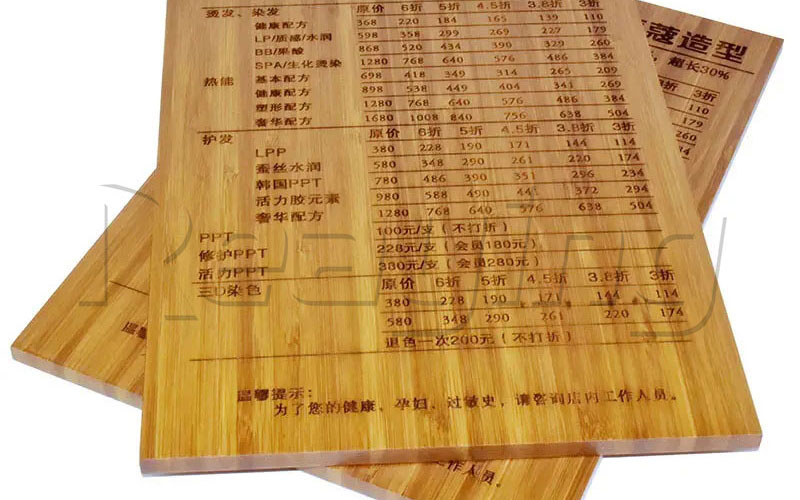 烫发、染发 原价 6折 5折 4.5折 3.8折 3折
健康配方 368 220 184 165 139 110
LP/质感/水润 598 358 299 269 227 179
BB/果酸 868 520 434 390 329 260
SPA/生化烫染 1280 768 640 576 486 384
热能 基本配方 698 418 349 314 265 209
健康配方 898 538 449 404 341 269
塑形配方 1280 768 640 576 486 384
奢华配方 1680 1008 840 756 638 504
护发 原价 6折 5折 4.5折 3.8折 3折
LPP 380 228 190 171 144 114
蚕丝水润 580 348 290 261 220 174
韩国PPT 780 486 390 351 296 234
活力胶元素 980 588 490 441 372 294
奢华配方 1280 768 640 576 638 504
PPT 100元/支（不打折）
修护PPT 228元/支（会员180元）
活力PPT 380元/支（会员280元）
三D染色 原价 6折 5折 4.5折 3.8折 3折
380 228 190 171 144 114
580 348 290 261 220 174
退色一次200元（不打折）
温馨提示：
为了您的健康、孕妇、过敏史，请咨询店内工作人员。
蔻造型
超长30%
折 3折
110
179
260
384
温馨
工作人员。
Reaying